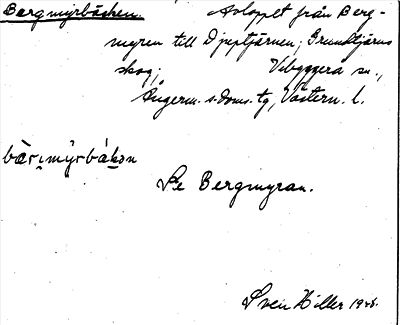 Bergmyrbäcken Avloppet från Berg-
myren till Djuptjärnen; Grundtjärns
skog; Vibyggerå sn.,
Ångerm. s. doms. tg, Västern. l.
bær̥ımýrbäkən
Se Bergmyran.
Sven Hiller 1948.